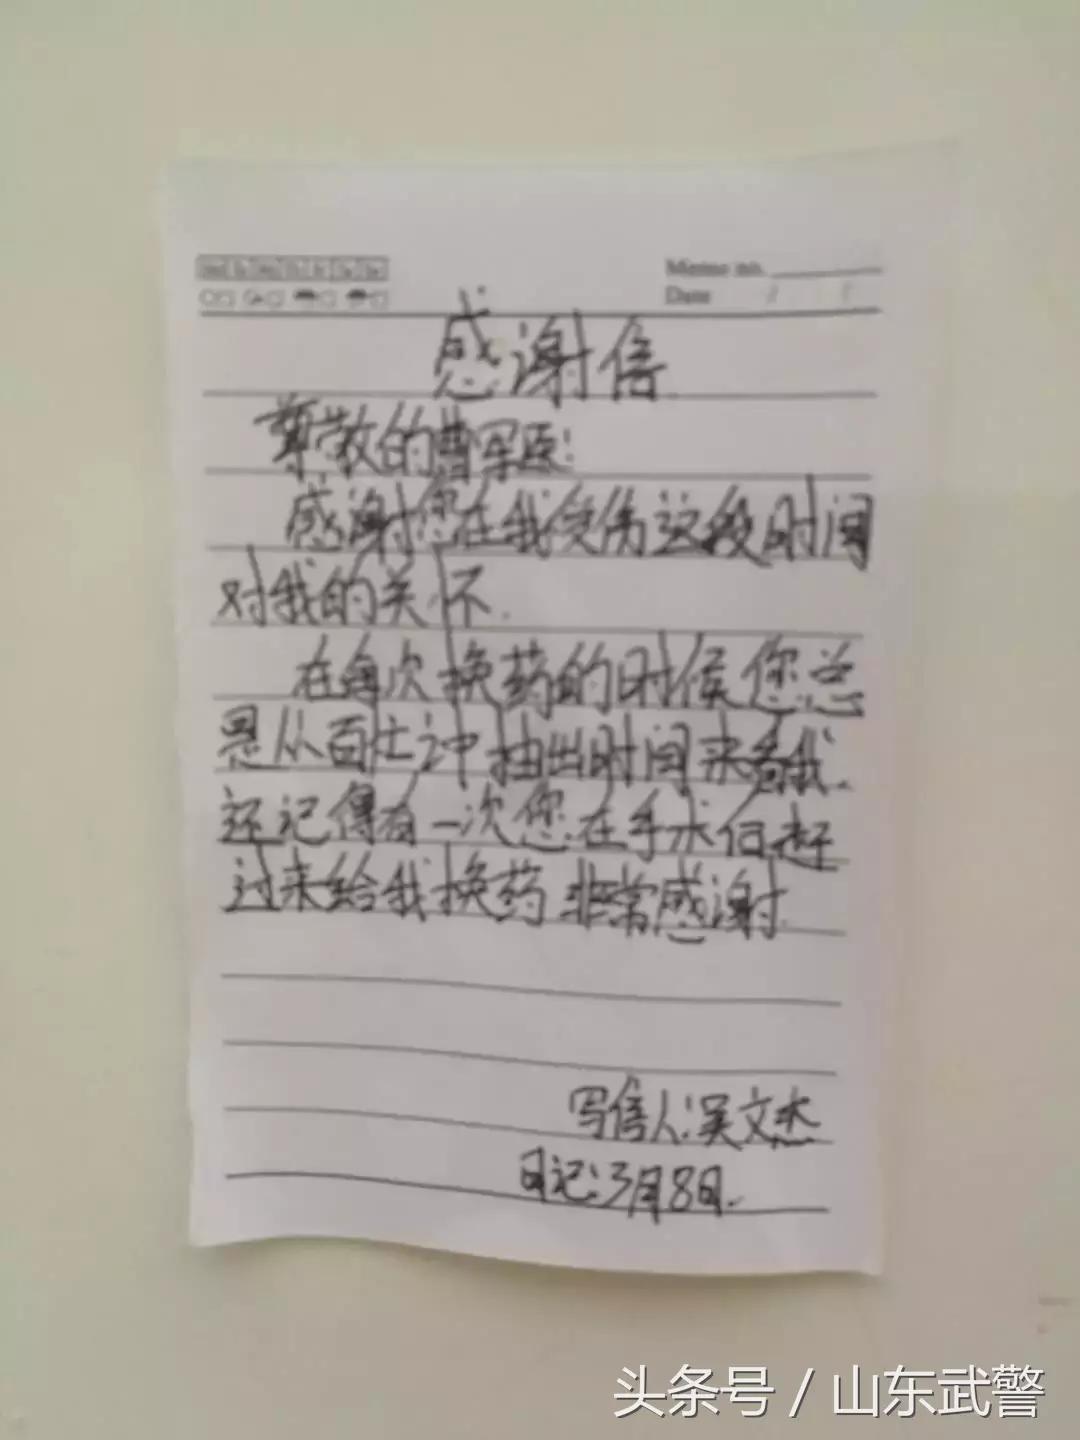 Memo no.
Date / /
感谢信
尊敬的曹军医:
感谢您在我受伤这段时间
对我的关怀.
在每次换药的时候您总
是从百忙之中抽出时间来看我.
还记得有一次您在手术后赶
过来给我换药非常感谢.
写信人:吴文杰
日记:3月8日.
头条号 / 山东武警